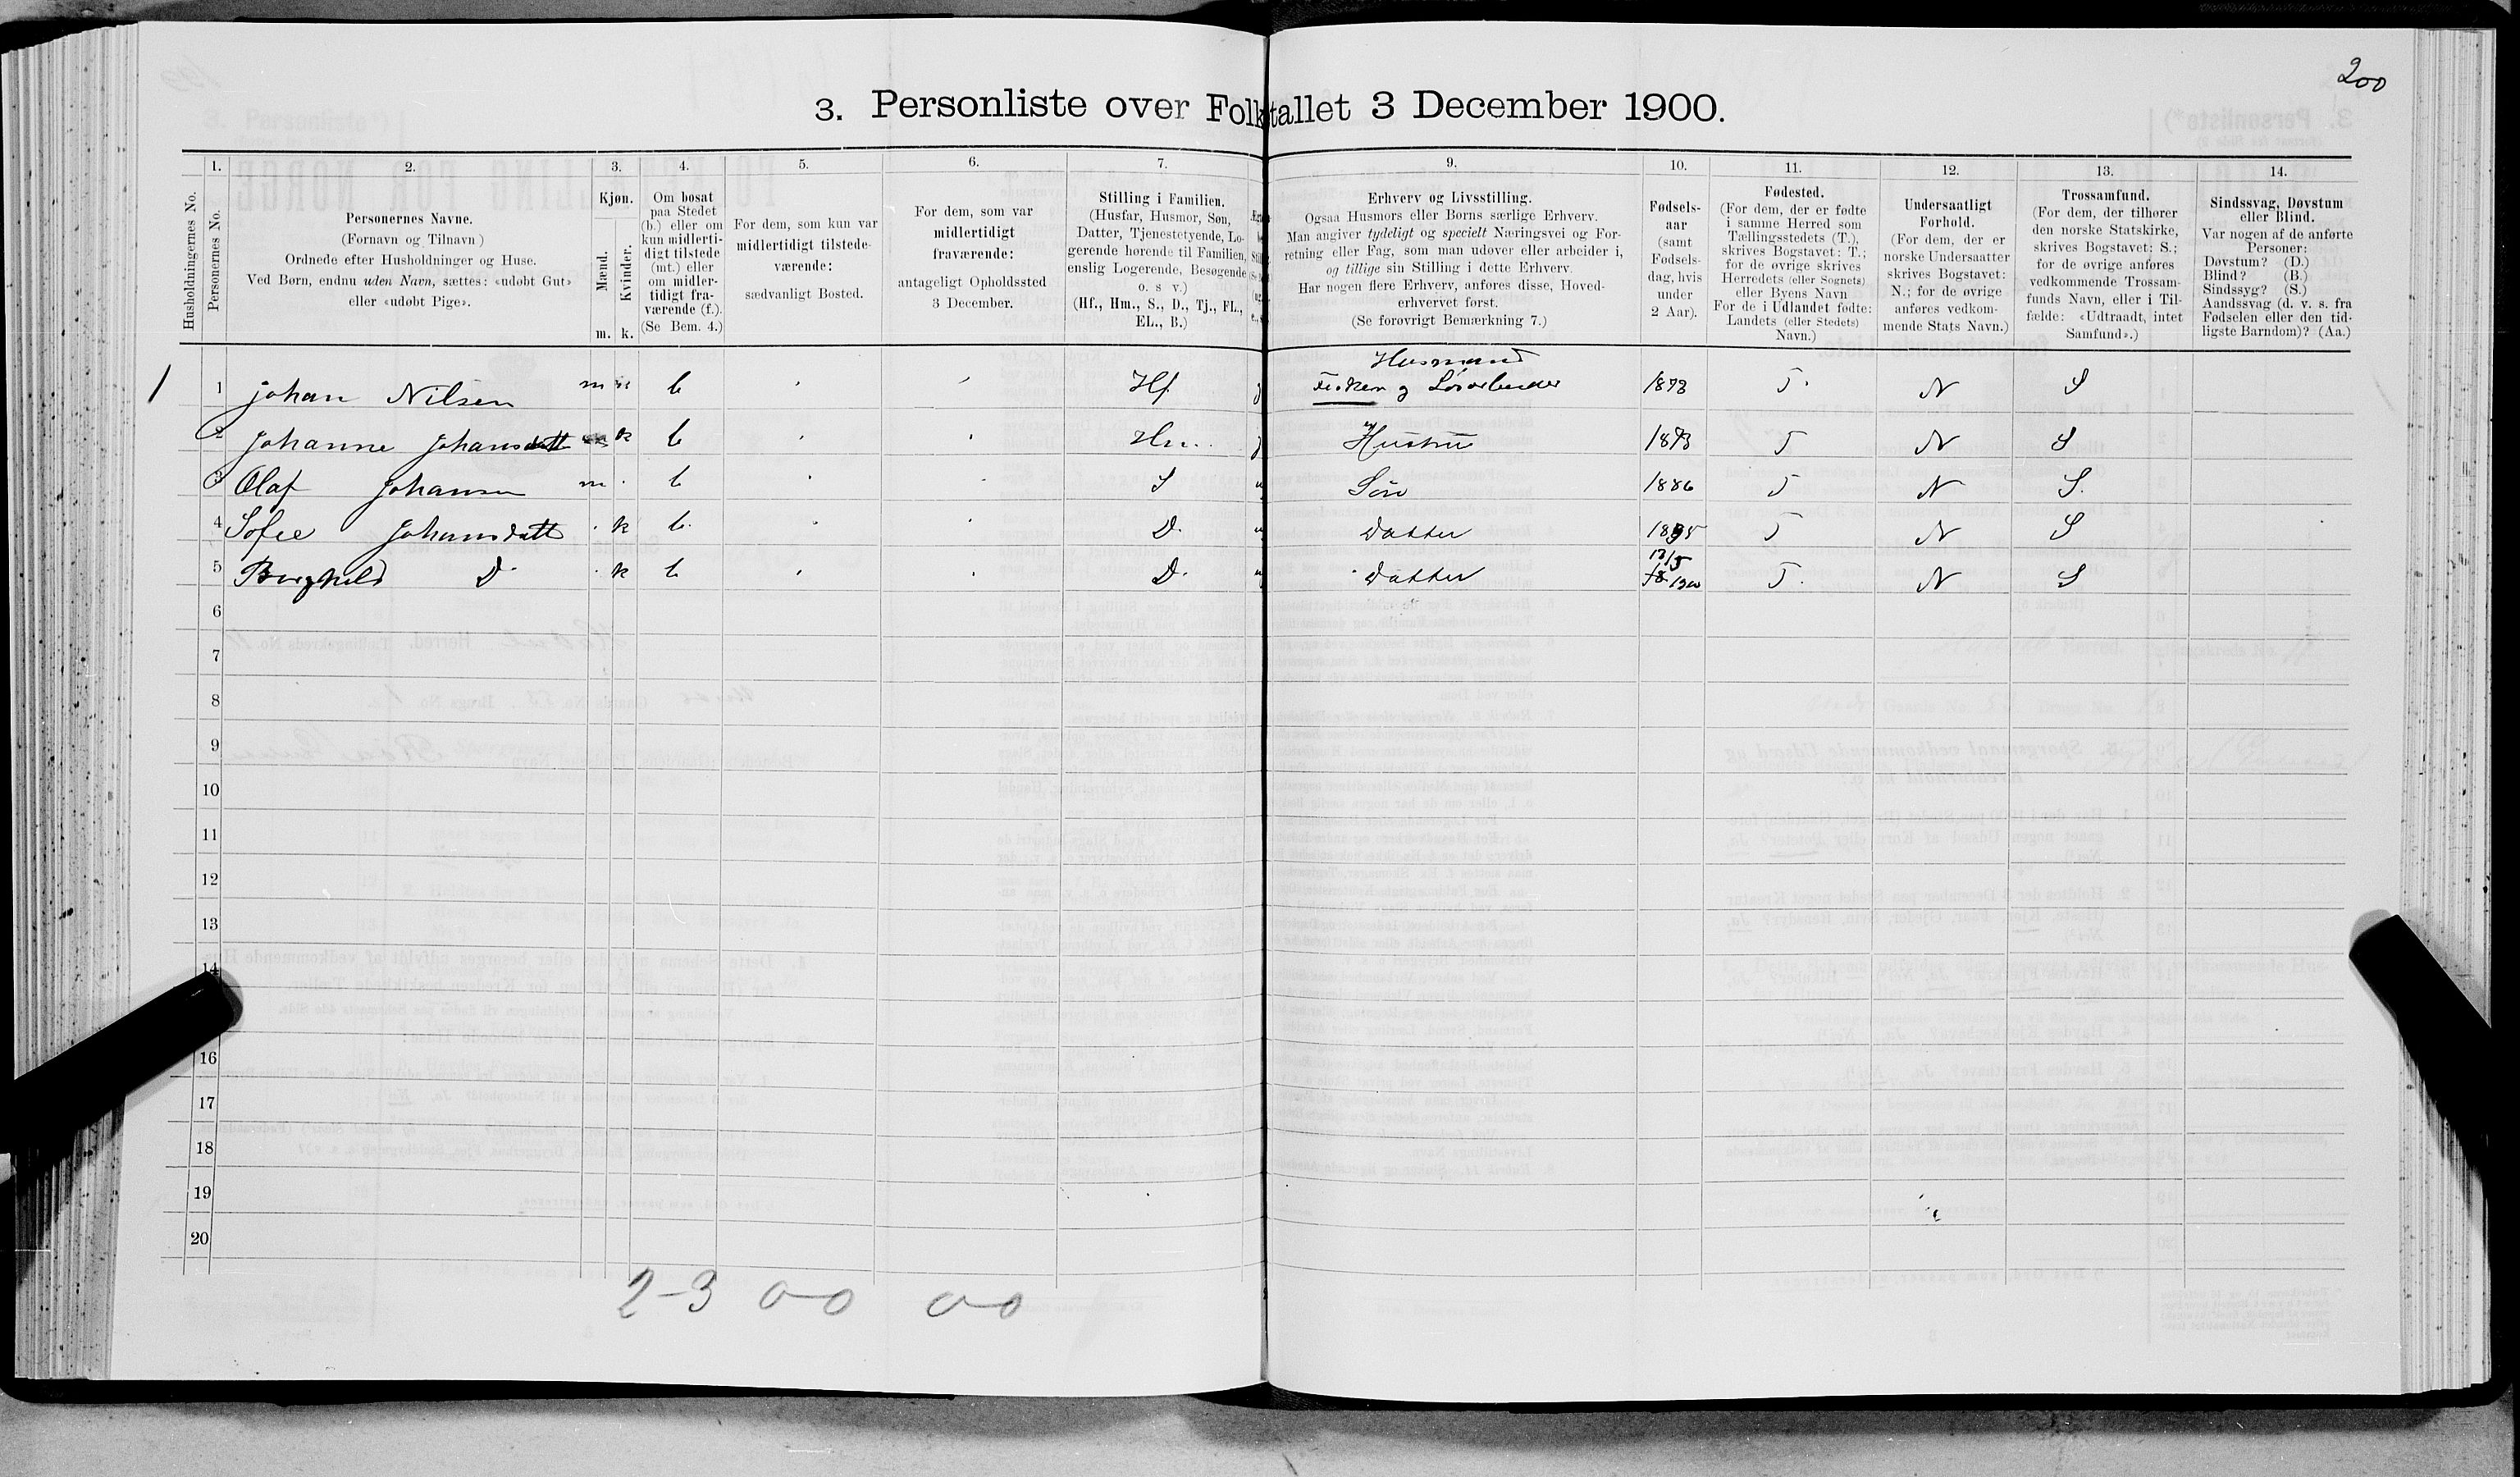 200
3. Personliste over Folketallet 3 December 1900.
1. 2. 3. 4. 5. 6. 7. 9. 10. 11. 12. 13. 14.
Husholdningernes No.
Personernes No.
Personernes Navne.
(Fornavn og Tilnavn)
Ordnede efter Husholdninger og Huse.
Ved Børn, endnu uden Navn, sættes: «udøbt Gut»
eller «udøbt Pige».
Kjøn.
Mænd.
Kvinder.
m. k.
Om bosat
paa Stedet
(b.) eller om
kun midlerti-
digt tilstede
(mt.) eller
om midler-
tidigt fra-
værende (f.).
(Se Bem. 4.)
For dem, som kun var
midlertidigt tilstede-
værende:
sædvanligt Bosted.
For dem, som var
midlertidigt
fraværende:
antageligt Opholdssted
3 December.
Stilling i Familien.
(Husfar, Husmor, Søn,
Datter, Tjenestetyende, Lo-
gerende hørende til Familien,
enslig Logerende, Besøgende
o. s v.)
(Hf., Hm., S., D., Tj., FL.,
EL., B.)
Erhverv og Livsstilling.
Ogsaa Husmors eller Børns særlige Erhverv.
Man angiver tydeligt og specielt Næringsvei og For-
retning eller Fag, som man udøver eller arbeider i,
og tillige sin Stilling i dette Erhverv.
Har nogen flere Erhverv, anføres disse, Hoved-
erhvervet først.
(Se forøvrigt Bemærkning 7.)
Fødsels-
aar
(samt
Fødsels-
dag, hvis
under
2 Aar).
Fødested.
(For dem, der er fødte
i samme Herred som
Tællingsstedets (T.),
skrives Bogstavet: T.;
for de øvrige skrives
Herredets (eller Sognets)
eller Byens Navn
For de i Udlandet fødte:
Landets (eller Stedets)
Navn.)
Undersaatligt
Forhold.
(For dem, der er
norske Undersaatter
skrives Bogstavet:
N.; for de øvrige
anføres vedkom-
mende Stats Navn.)
Trossamfund.
(For dem, der tilhører
den norske Statskirke,
skrives Bogstavet: S.;
for de øvrige anføres
vedkommende Trossam-
funds Navn, eller i Til-
fælde: «Udtraadt, intet
Samfund».)
Sindssvag, Døvstum
eller Blind.
Var nogen af de anførte
Personer:
Døvstum? (D.)
Blind? (B.)
Sindssyg? (S.)
Aandssvag (d. v. s. fra
Fødselen eller den tid-
ligste Barndom)? (Aa.)
Husmand
1 1 Johan Nilsen m b Hf Fisker og T N S
2 Johanne Johansdatt k b Hm. Hustru T N S
3 Olaf Johansen m b S Søn 1886 T N S.
4 Sofie Johansdatt k b. D. Datter T N S
5 Borghild D k b D. Datter T. N S
6
7
8
9
10
11
12
13
14
16
17
18
19
20
2-3 0-0 0-0